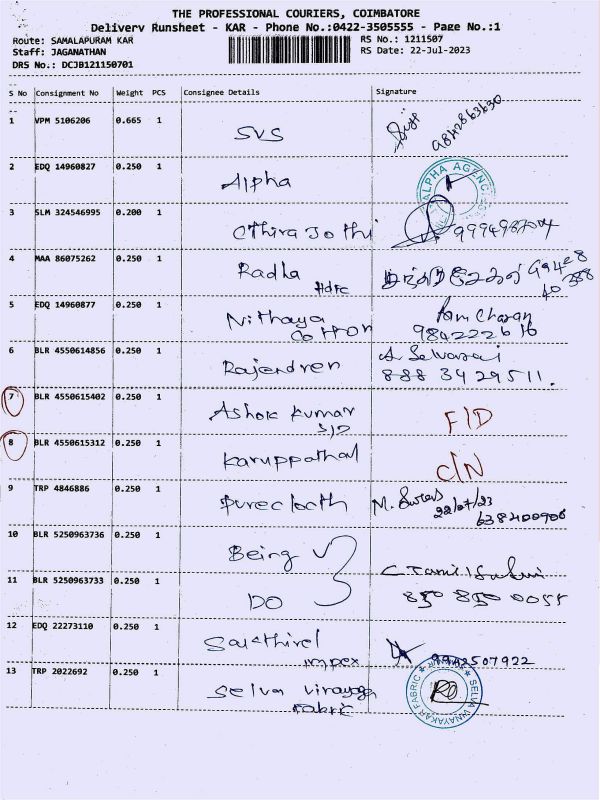 THE PROFESSIONAL COURIERS, COIMBATORE
Delivery Runsheet - KAR - Phone No.:0422-3505555 - Page No.:1
Route: SAMALAPURAM KAR
RS No.: 1211507
Staff: JAGANATHAN
RS Date: 22-Jul-2023
DRS No.: DCJB121150701
S No Consignment No Weight PCS Consignee Details Signature
1 VPM 5106206 0.665 1
SVS
9842863630
2 EDQ 14960827 0.250 1
Alpha
ALPHA AGENCIES
3 SLM 324546995 0.200 1
Cthira Jothi
4 MAA 86075262 0.250 1
Radha
Hdfc
99428
40388
5 EDQ 14960877 0.250 1
Nithaya
Cotton
Ram Charan
984222616
6 BLR 4550614856 0.250 1
Rajendren
A. Selvaraj
888 34 29511.
7 BLR 4550615402 0.250 1
Ashok Kumar
S/D
F/D
8 BLR 4550615312 0.250 1
Karuppathal
C/N
9 TRP 4846886 0.250 1
Purecloth
M.
22/07/23
638400906
10 BLR 5250963736 0.250 1
Being
11 BLR 5250963733 0.250 1
DO
850 850 0055
12 EDQ 22273110 0.250 1
impex
9942507922
13 TRP 2022692 0.250 1
Selva Vinayaga
Fabric
SELVA VINAYAKAR FABRIC